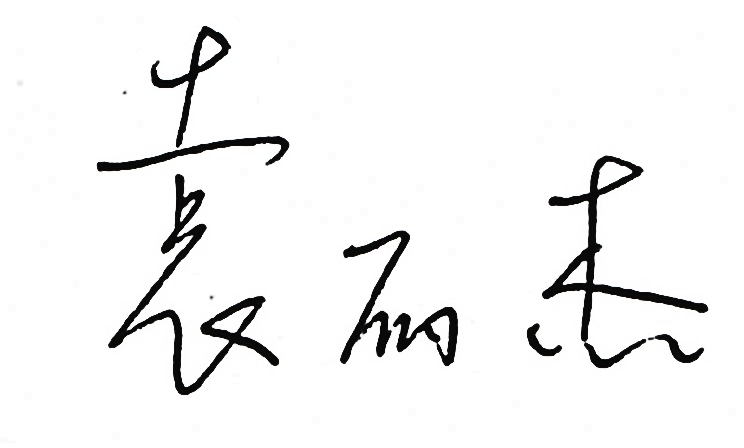 袁丽杰